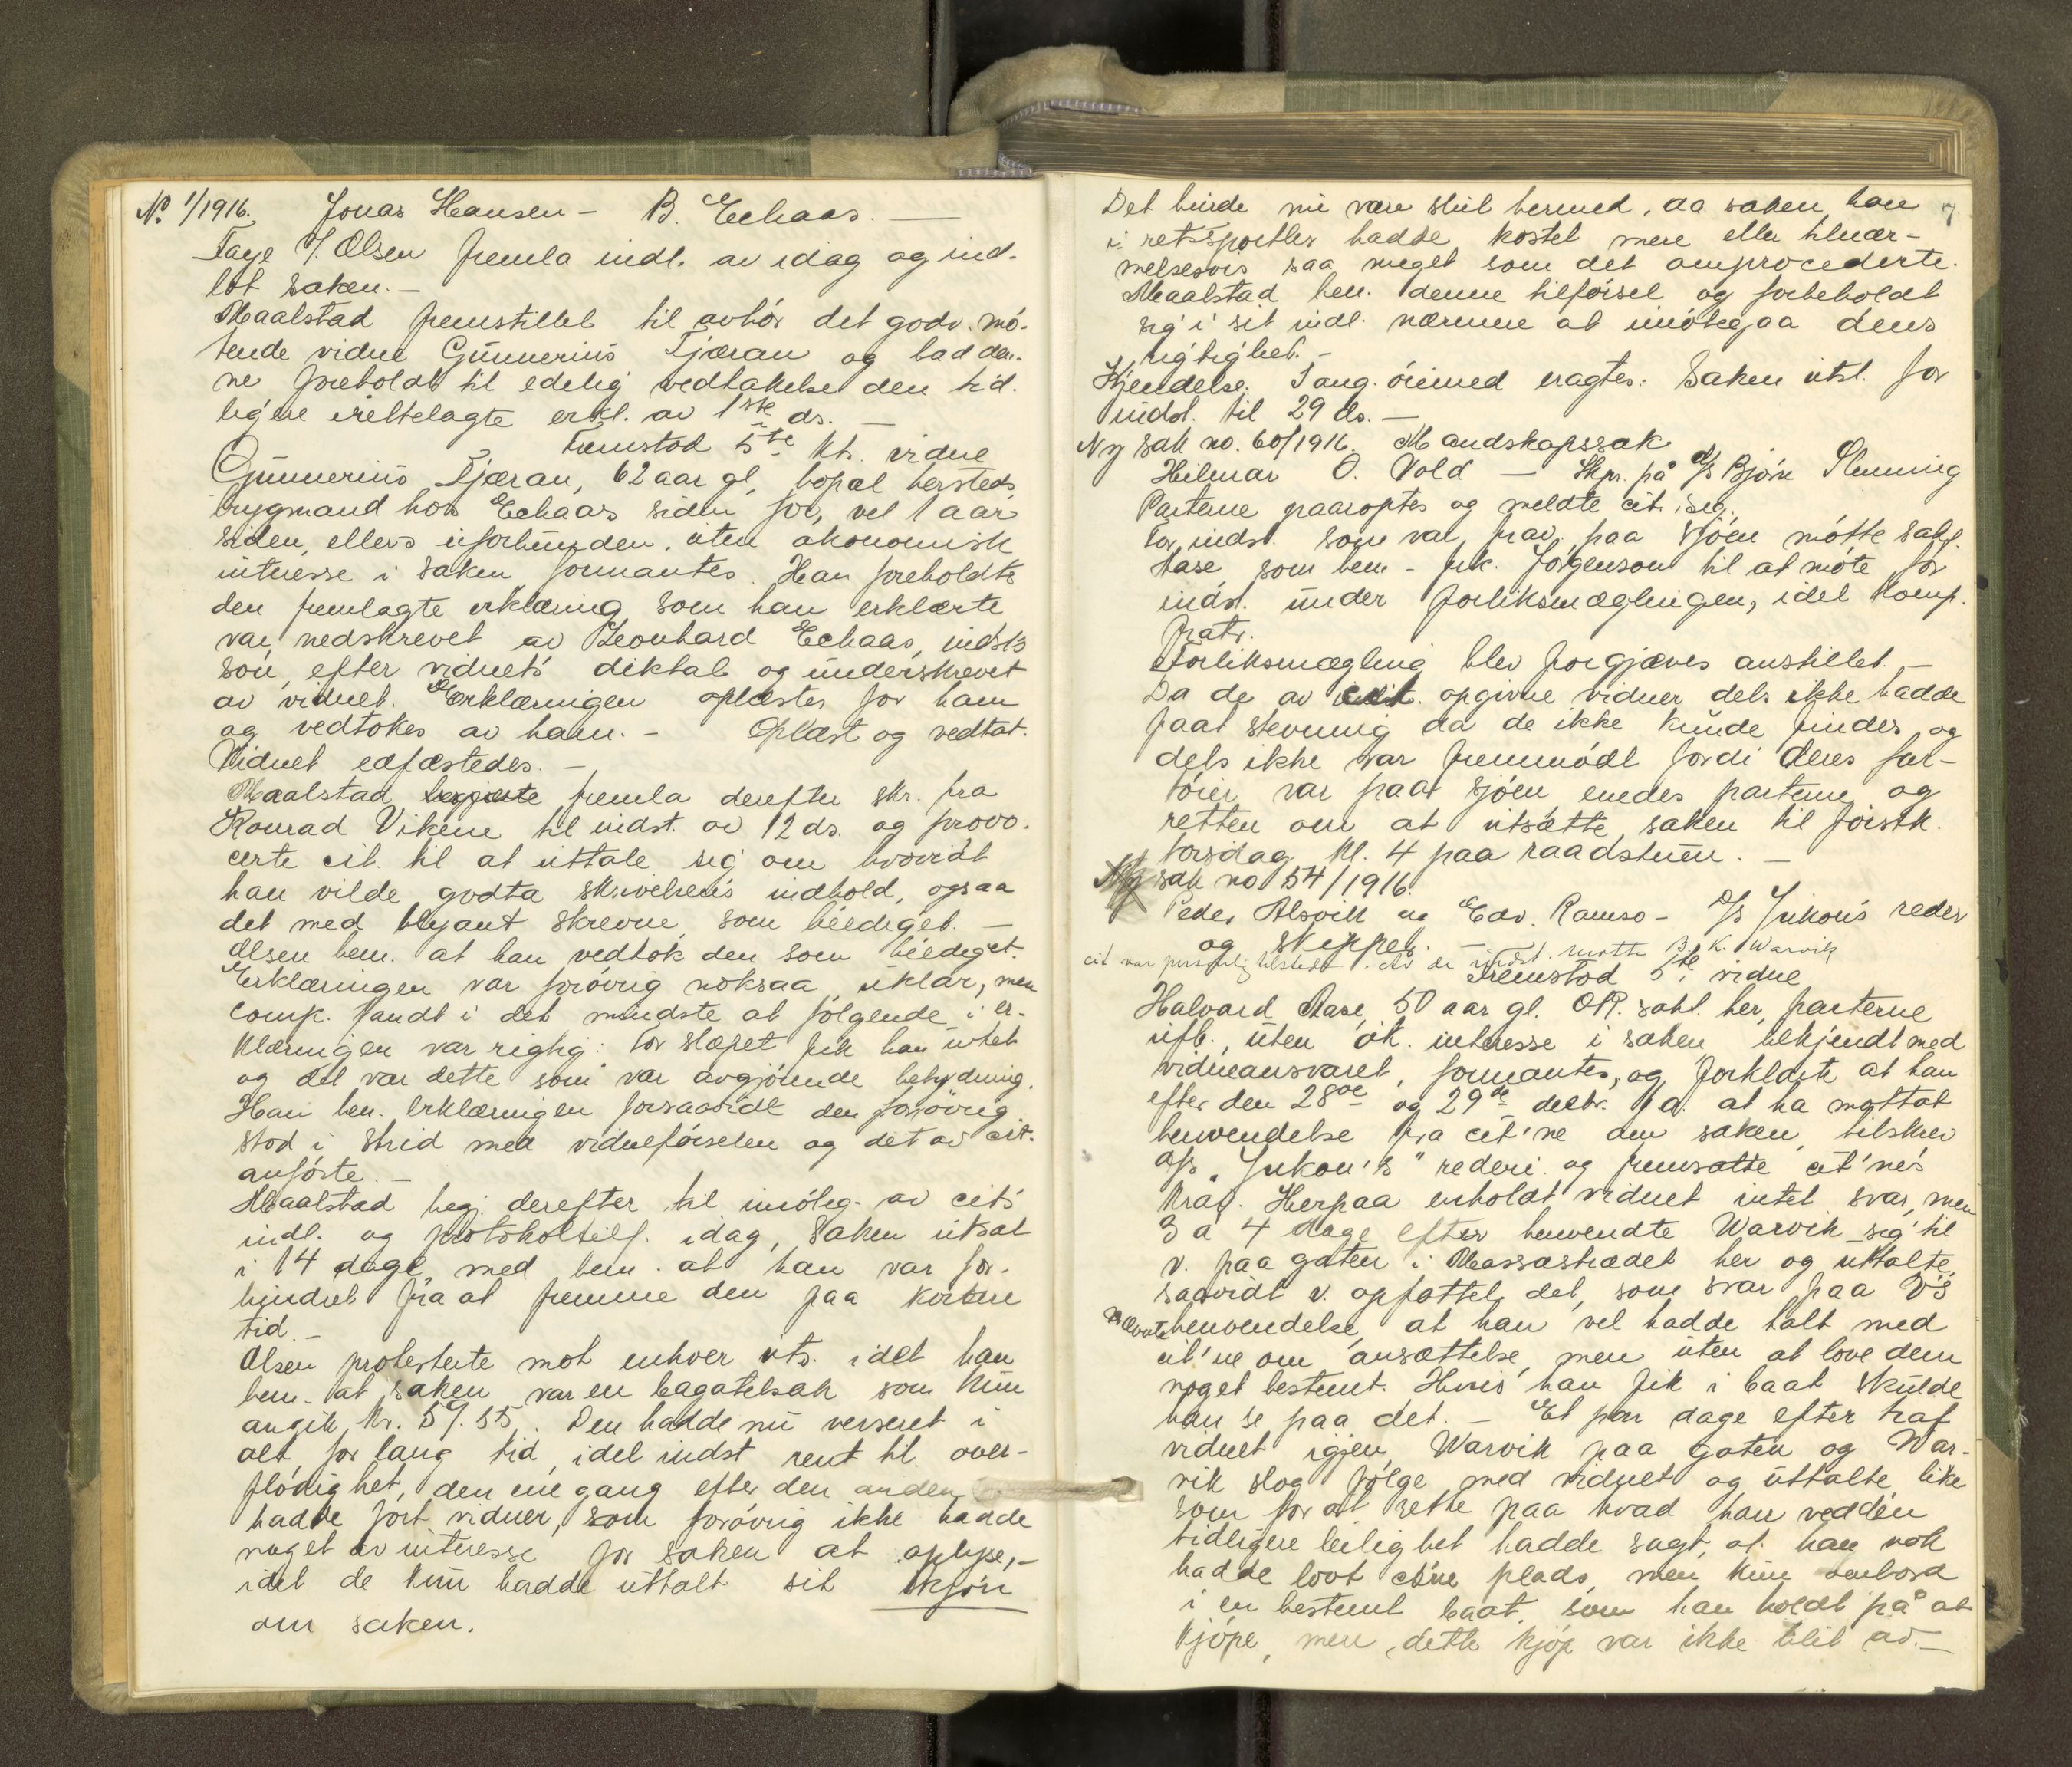 No. 1/1916. Jonas Hansen - B. Echaas. —
Tage J. Olsen fremla indl. av idag og ind-
lot saken. -
Maalstad fremstillet til avhør det godv. mø-
tende vidne Gunnerius Tjæran og bad den-
ne foreholdt til edelig vedtakelse den tid-
ligere irettelagte erkl. av 1ste ds. —
Fremstod 5te kts. vidne
Gunnerius Tjæran, 62 aar gl, bopæl hersteds,
brygmand hos Echaas siden for, vel 1 aar
siden, ellers uforbunden, uten økonomisk
interesse i saken, formantes. Han foreholdte
den fremlagte erklæring som han erklærte
var nedskrevet av Leonhard Echaas, indst's
søn, efter vidnet's diktat og underskrevet
av vidnet. Erklæringen oplæstes for ham
og vedtokes av ham. - Oplæst og vedtat.
Vidnet edfæstedes. -
Maalstad begjærte fremla derefter skr. fra
Konrad Vikene til indst. av 12 ds. og provo-
certe cit. til at uttale sig om hvorvidt
han vilde godta skrivelsen's indhold, ogsaa
det med blyant skrevne, som beediget. —
Olsen bem. at han vedtok den som beediget.
Erklæringen var forøvrig noksaa uklar, men
comp. fandt i det mindste at følgende i er-
klæringen var rigtig: for slæpet fik han intet
og det var dette som var avgjørende betydning.
Han ben. erklæringen forsaavidt den forøvrig
stod i strid med vidneførselen og det av cit.
anførte. -
Maalstad begj. derefter til imøteg. av cit's
indl. og protokoltilf. idag, saken utsat
i 14 dage, med bem. at han var for-
hindret fra at fremme den paa kortere
tid. -
Olsen protesterte mot enhver uts. idet han
bem. at saken var en bagatelsak som kun
angik kr. 59.55. Den hadde nu verseret i
alt for lang tid, idet indst rent til over-
flødighet, den ene gang efter den anden
hadde ført vidner, som forøvrig ikke hadde
noget av interesse for saken at oplyse, -
idet de kun hadde uttalt sit skjøn
om saken.
Det burde nu være slut hermed, da saken han 7
i retssportler hadde kostet mere eller tilnær-
melsesvis saa meget som det omprocederte.
Maalstad ben. denne tilførsel og forbeholdt
sig i sit indl. nærmere at imøtegaa dens
rigtighet. -
Kjendelse. I ang. øiemed eragtes: Saken uts. for
indst. til 29 ds. -
Ny sak no. 60/1916. Mandskapssak
Hilmar O. Vold — Skpr. på D/S Bjørn Slenning
Parterne paaroptes og meldte cit. sig.
For indst. som var frav. paa sjøen møtte sakf.
Aase som bem - frk. Jørgenson til at møte for
indst. under forliksmæglingen, idet komp.
fratr.
Forliksmægling blev forgjæves anstillet. -
Da de av cit. opgivne vidner dels ikke hadde
faat stevning da de ikke kunde findes og
dels ikke var fremmødt fordi deres far-
tøier var paa sjøen, enedes parterne og
retten om at utsætte saken til førstk.
torsdag kl. 4 paa raadstuen. —
Ny sak no 54/1916.
Peder Alsvik og Edv. Ramsø - D/S Jukon's reder
og skipper. —
cit var personlig tilstede. For de indst. møtte B. K. Warvik
Fremstod 5te vidne
Halvard Aase, 50 aar gl. OR. sakf. her, parterne
ufb., uten øk. interesse i saken, bekjendt med
vidneansvaret, formantes, og forklarte at han
efter den 28de og 29de decbr. f.a. at ha mottat
henvendelse fra cit'ne om saken, tilskrev
D/S "Jukon's" rederi og fremsatte cit'ne's
krav. Herpaa erholdt vidnet intet svar, men
3 à 4 dage efter henvendte Warvik sig til
v. paa gaten i Massastrædet her og uttalte,
saavidt v. opfattet det, som svar paa v's
nævnte henvendelse, at han vel hadde talt med
cit'ne om ansættelse, men uten at love dem
noget bestemt. Hvis han fik i baat skulde
han se paa det. - Et par dage efter traf
vidnet igjen Warvik paa gaten og War-
vik slog følge med vidnet og uttalte like
som for at rette paa hvad han ved den
tidligere leilighet hadde sagt, at han nok
hadde lovt cit'ne plads, men kun ombord
i en bestemt baat, som han holdt på at
kjøpe, men dette kjøp var ikke blit av. —